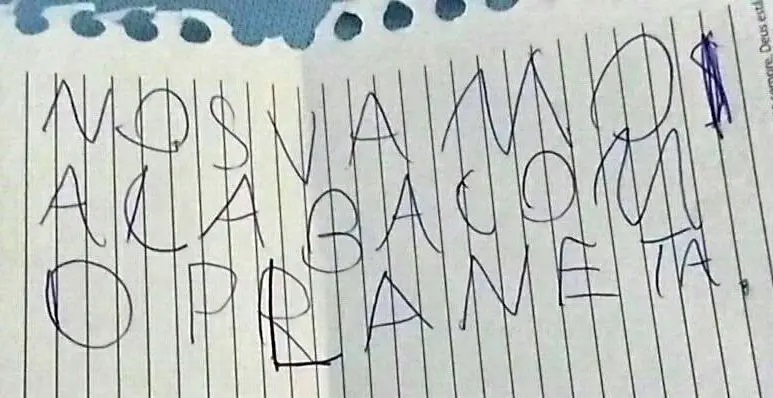 NOSVAMOS
ALABACOM
OPLANETA.
sempre. Deus está